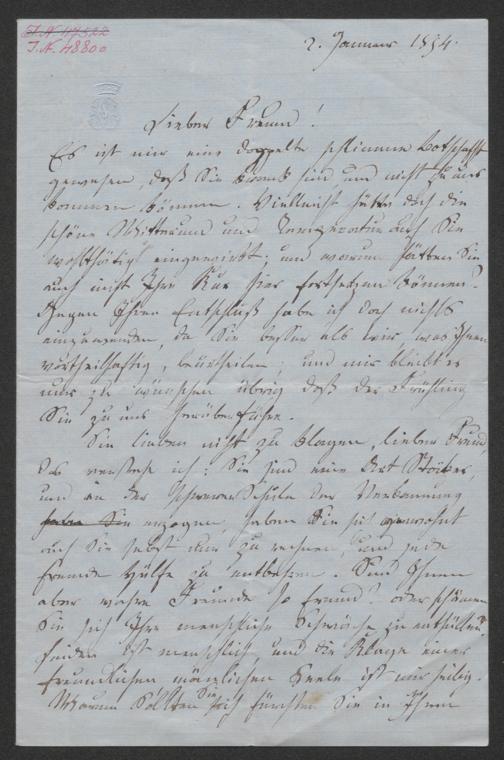 I.N. 47522
I.N. 48800
2. Januar 1854.
Lieber Freund!
Es ist mir eine doppelte schlimme Botschaft
gewesen, daß Sie krank sind und nicht zu uns
kommen können. Vielleicht hätte doch die
schöne Witterung und Temperatur auch Sie
wohlthätig eingewirkt; und warum hätten Sie
auch nicht Ihre Kur hier fortsetzen können?
Gegen Ihren Entschluß habe ich doch nichts
einzuwenden, da Sie besser als wir, was Ihnen
vortheilhaftig, beurtheilen; und mir bleibt es
nur zu wünschen übrig daß der Frühling
Sie zu uns herüber führe.
Sie lieben nicht zu klagen, lieber Freund,
das verstehe ich: Sie sind eine Art Stoiker,
und in der schweren Schule der Verbannung
haben Sie erzogen, haben Sie sich gewohnt
auf Sie selbst nur zu rechnen, und jede
fremde Hülfe zu entbehren. Sind Ihnen
aber wahre Freunde so fremd? oder schämen
Sie sich Ihre menschliche Schwäche zu enthüllen?
Leiden ist menschlich, und die Klage einer
freundlichen männlichen Seele ist mir heilig.
Warum sollten Sie sich fürchten Sie in Ihrem